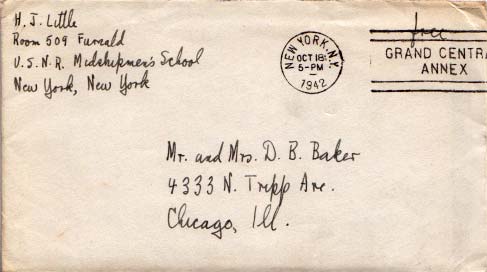 H. J. Little
Room 509 Furnald
U.S.N.R. Midshipmen's School
New York, New York
NEW YORK, N.Y.
OCT 18
5-PM
1942
free
GRAND CENTRA
ANNEX
Mr. and Mrs. D. B. Baker
4333 N. Tripp Ave.
Chicago, Ill.